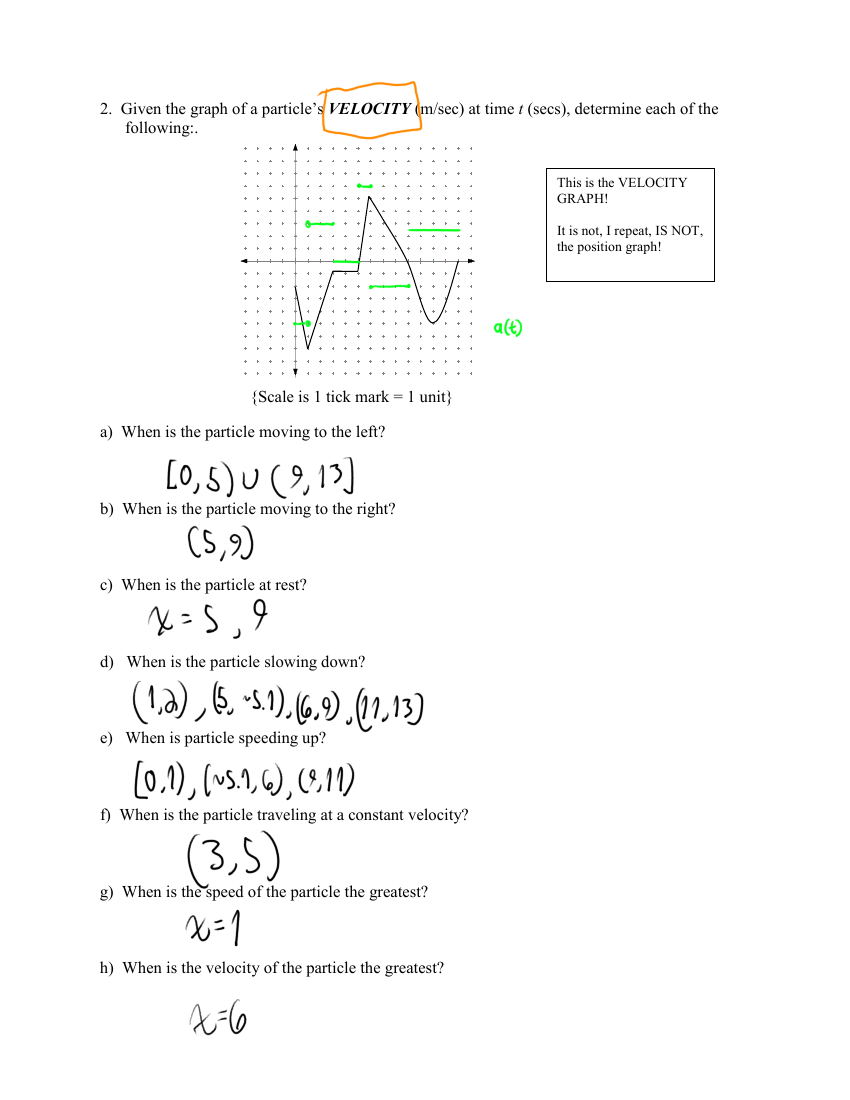 2. Given the graph of a particle's VELOCITY (m/sec) at time t (secs), determine each of the
following:.
This is the VELOCITY
GRAPH!
It is not, I repeat, IS NOT,
the position graph!
a(t)
{Scale is 1 tick mark = 1 unit}
a) When is the particle moving to the left?
[0,5) ∪ (9,13]
b) When is the particle moving to the right?
(5,9)
c) When is the particle at rest?
x = 5, 9
d) When is the particle slowing down?
(1,2), (5, ~5.1), (6,9), (11,13]
e) When is particle speeding up?
[0,1), (~5.1, 6), (9,11)
f) When is the particle traveling at a constant velocity?
(3,5)
g) When is the speed of the particle the greatest?
x=1
h) When is the velocity of the particle the greatest?
x=6